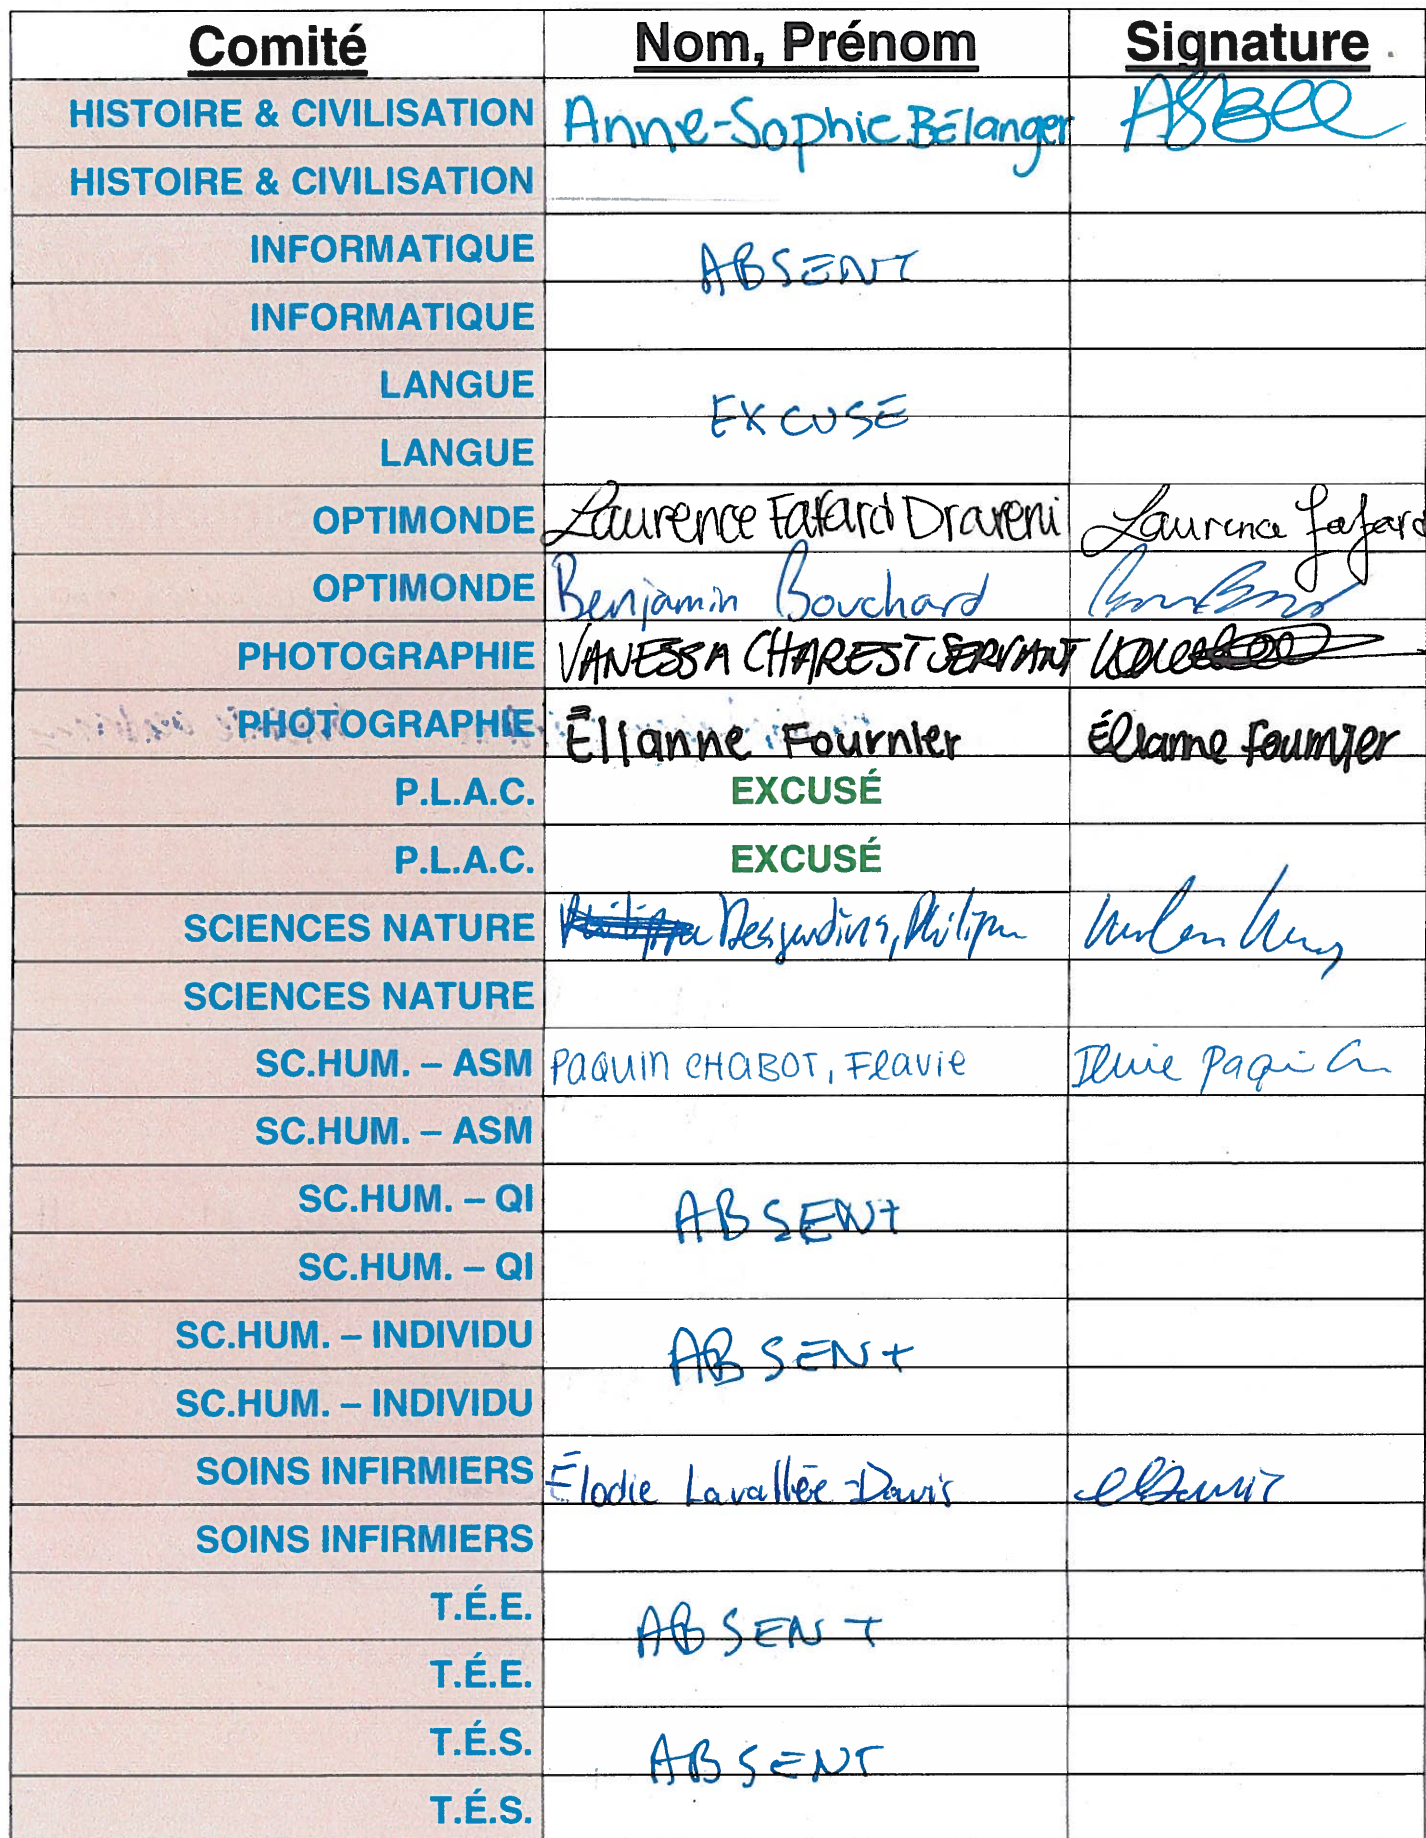 Comité Nom, Prénom Signature
HISTOIRE & CIVILISATION Anne-Sophie Bélanger
HISTOIRE & CIVILISATION
INFORMATIQUE ABSENT
INFORMATIQUE
LANGUE EXCUSE
LANGUE
OPTIMONDE Laurence Fafard Draveni Laurence Fafard
OPTIMONDE Benjamin Bouchard
PHOTOGRAPHIE VANESSA CHAREST SERVANT
PHOTOGRAPHIE Élianne Fournier Élianne Fournier
P.L.A.C. EXCUSÉ
P.L.A.C. EXCUSÉ
SCIENCES NATURE Desjardins, Philippe
SCIENCES NATURE
SC.HUM. – ASM PAQUIN CHABOT, Flavie
SC.HUM. – ASM
SC.HUM. – QI ABSENT
SC.HUM. – QI
SC.HUM. – INDIVIDU ABSENT
SC.HUM. – INDIVIDU
SOINS INFIRMIERS Élodie Lavallée-Davis
SOINS INFIRMIERS
T.É.E. ABSENT
T.É.E.
T.É.S. ABSENT
T.É.S.